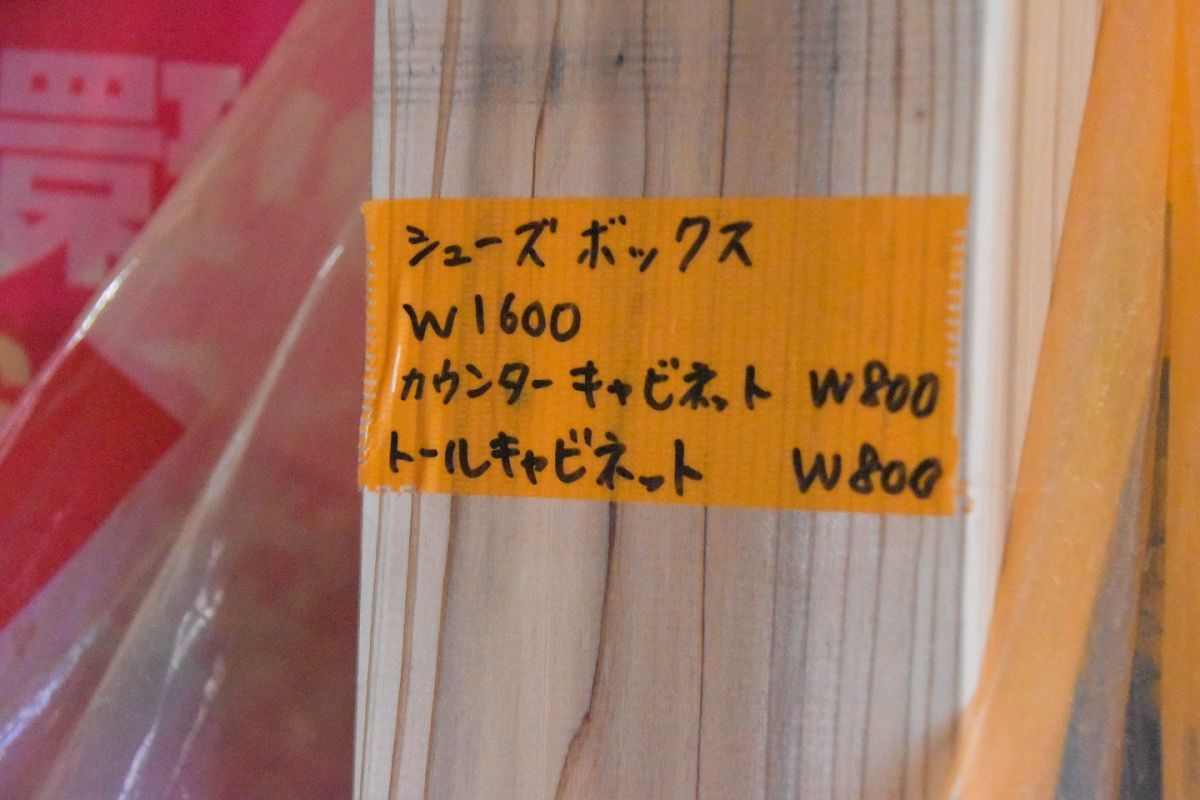 シューズボックス
W1600
カウンターキャビネット W800
トールキャビネット W800